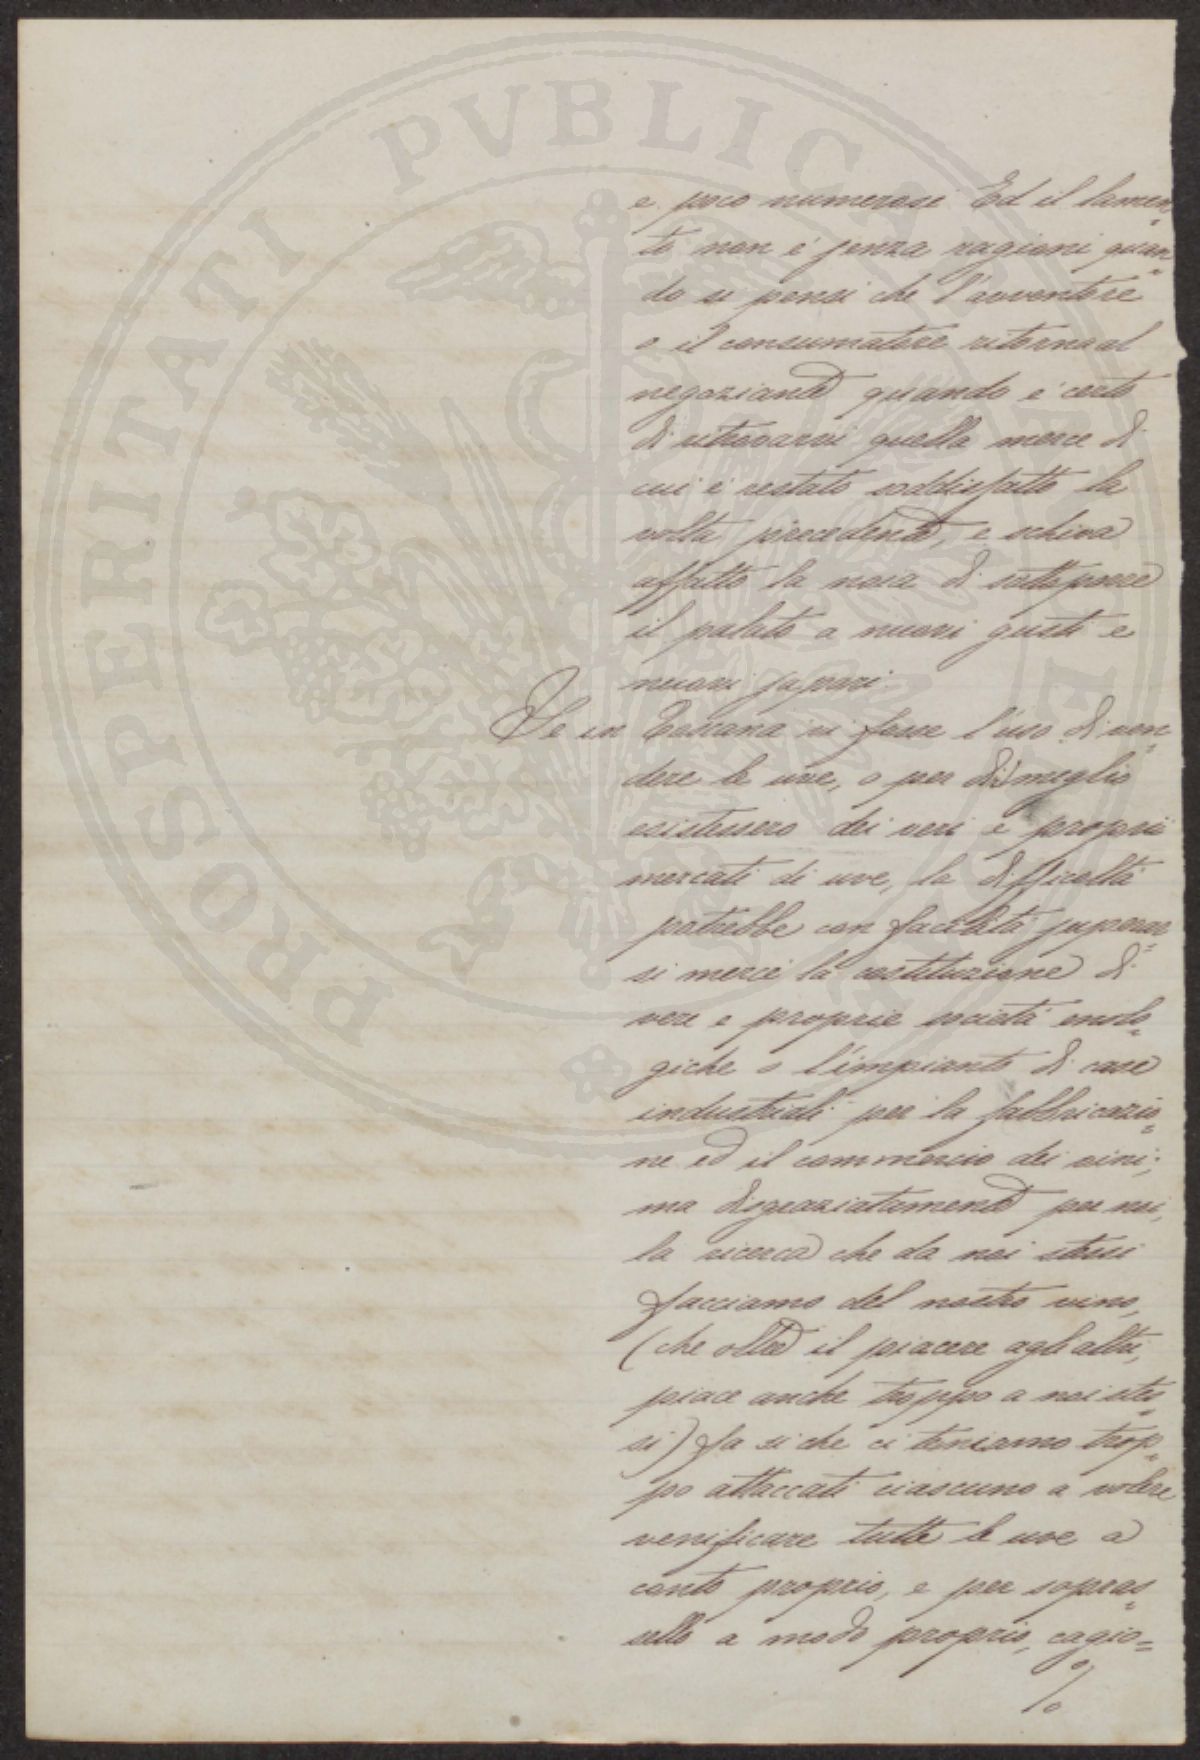 PROSPERITATI PVBLICAE
e poco numerosi. Ed il lamen=
to non è senza ragioni quan=
do si pensi che l'avventore
o il consumatore ritorna al
negoziante quando è certo
di ritrovarvi quella merce di
cui è restato soddisfatto la
volta precedente, e schiva
affatto la noia di sottoporre
il palato a nuovi gusti e
nuovi sapori.
Se in Toscana vi fosse l'uso di ven=
dere le uve, o per dir meglio
esistessero dei veri e proprii
mercati di uve, la difficoltà
potrebbe con facilità superar=
si mercè la costituzione di
vere e proprie società enolo=
giche o l'impianto di case
industriali per la fabbricazio=
ne ed il commercio dei vini;
ma disgraziatamente per noi,
la ricerca che da noi stessi
facciamo del nostro vino,
(che oltre il piacere agli altri,
piace anche troppo a noi stes=
si) fa si che ci teniamo trop=
po attaccati ciascuno a volere
venificare tutte le uve a
conto proprio, e per sopras=
sello a modo proprio, cagio=
%